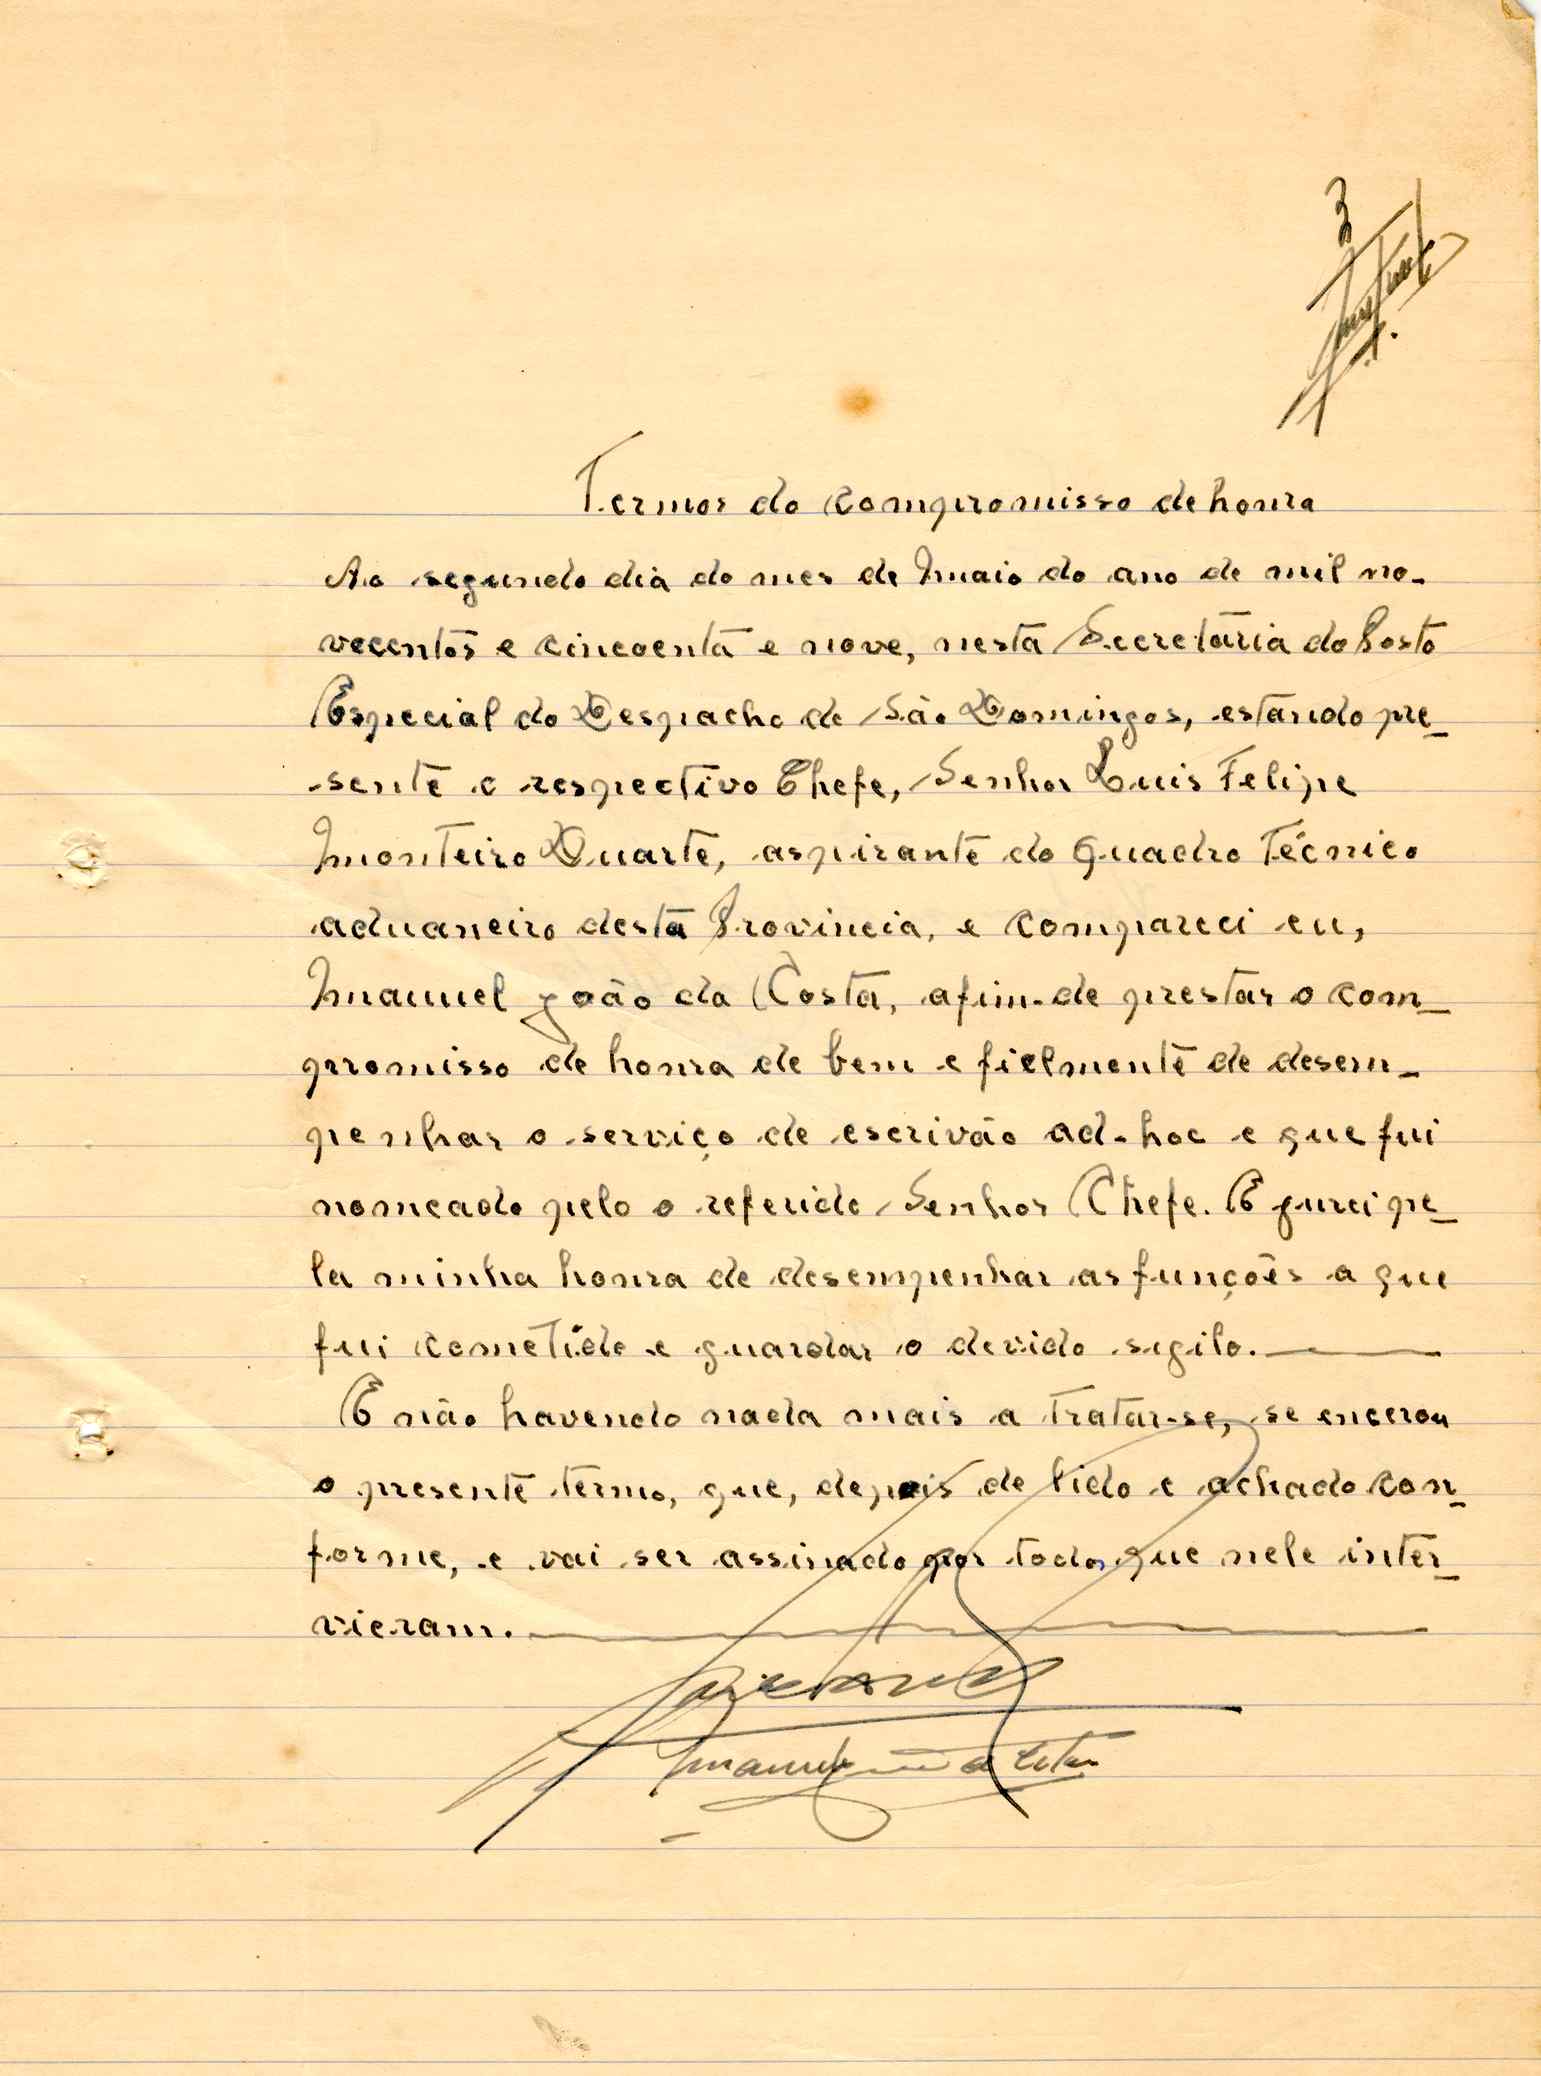 3
Termos do compromisso de honra
Ao segundo dia do mes de Maio do ano de mil no-
vecentos e cincoenta e nove, nesta Secretária do Posto
Especial do Despacho de São Domingos, estando pre-
sente o respectivo Chefe, Senhor Luis Felipe
Monteiro Duarte, aspirante do Quadro Técnico
aduaneiro desta Provincia, e compareci eu,
Manuel João da Costa, afim-de prestar o com-
promisso de honra de bem e fielmente de desem-
penhar o serviço de escrivão ad-hoc e que fui
nomeado pelo o referido Senhor Chefe. E jurei pe-
la minha honra de desempenhar as funções a que
fui cometido e guardar o devido sigilo.
E não havendo nada mais a tratar-se, se encerou
o presente termo, que, depois de lido e achado con-
forme, e vai ser assinado por todos que nele inter-
vieram.